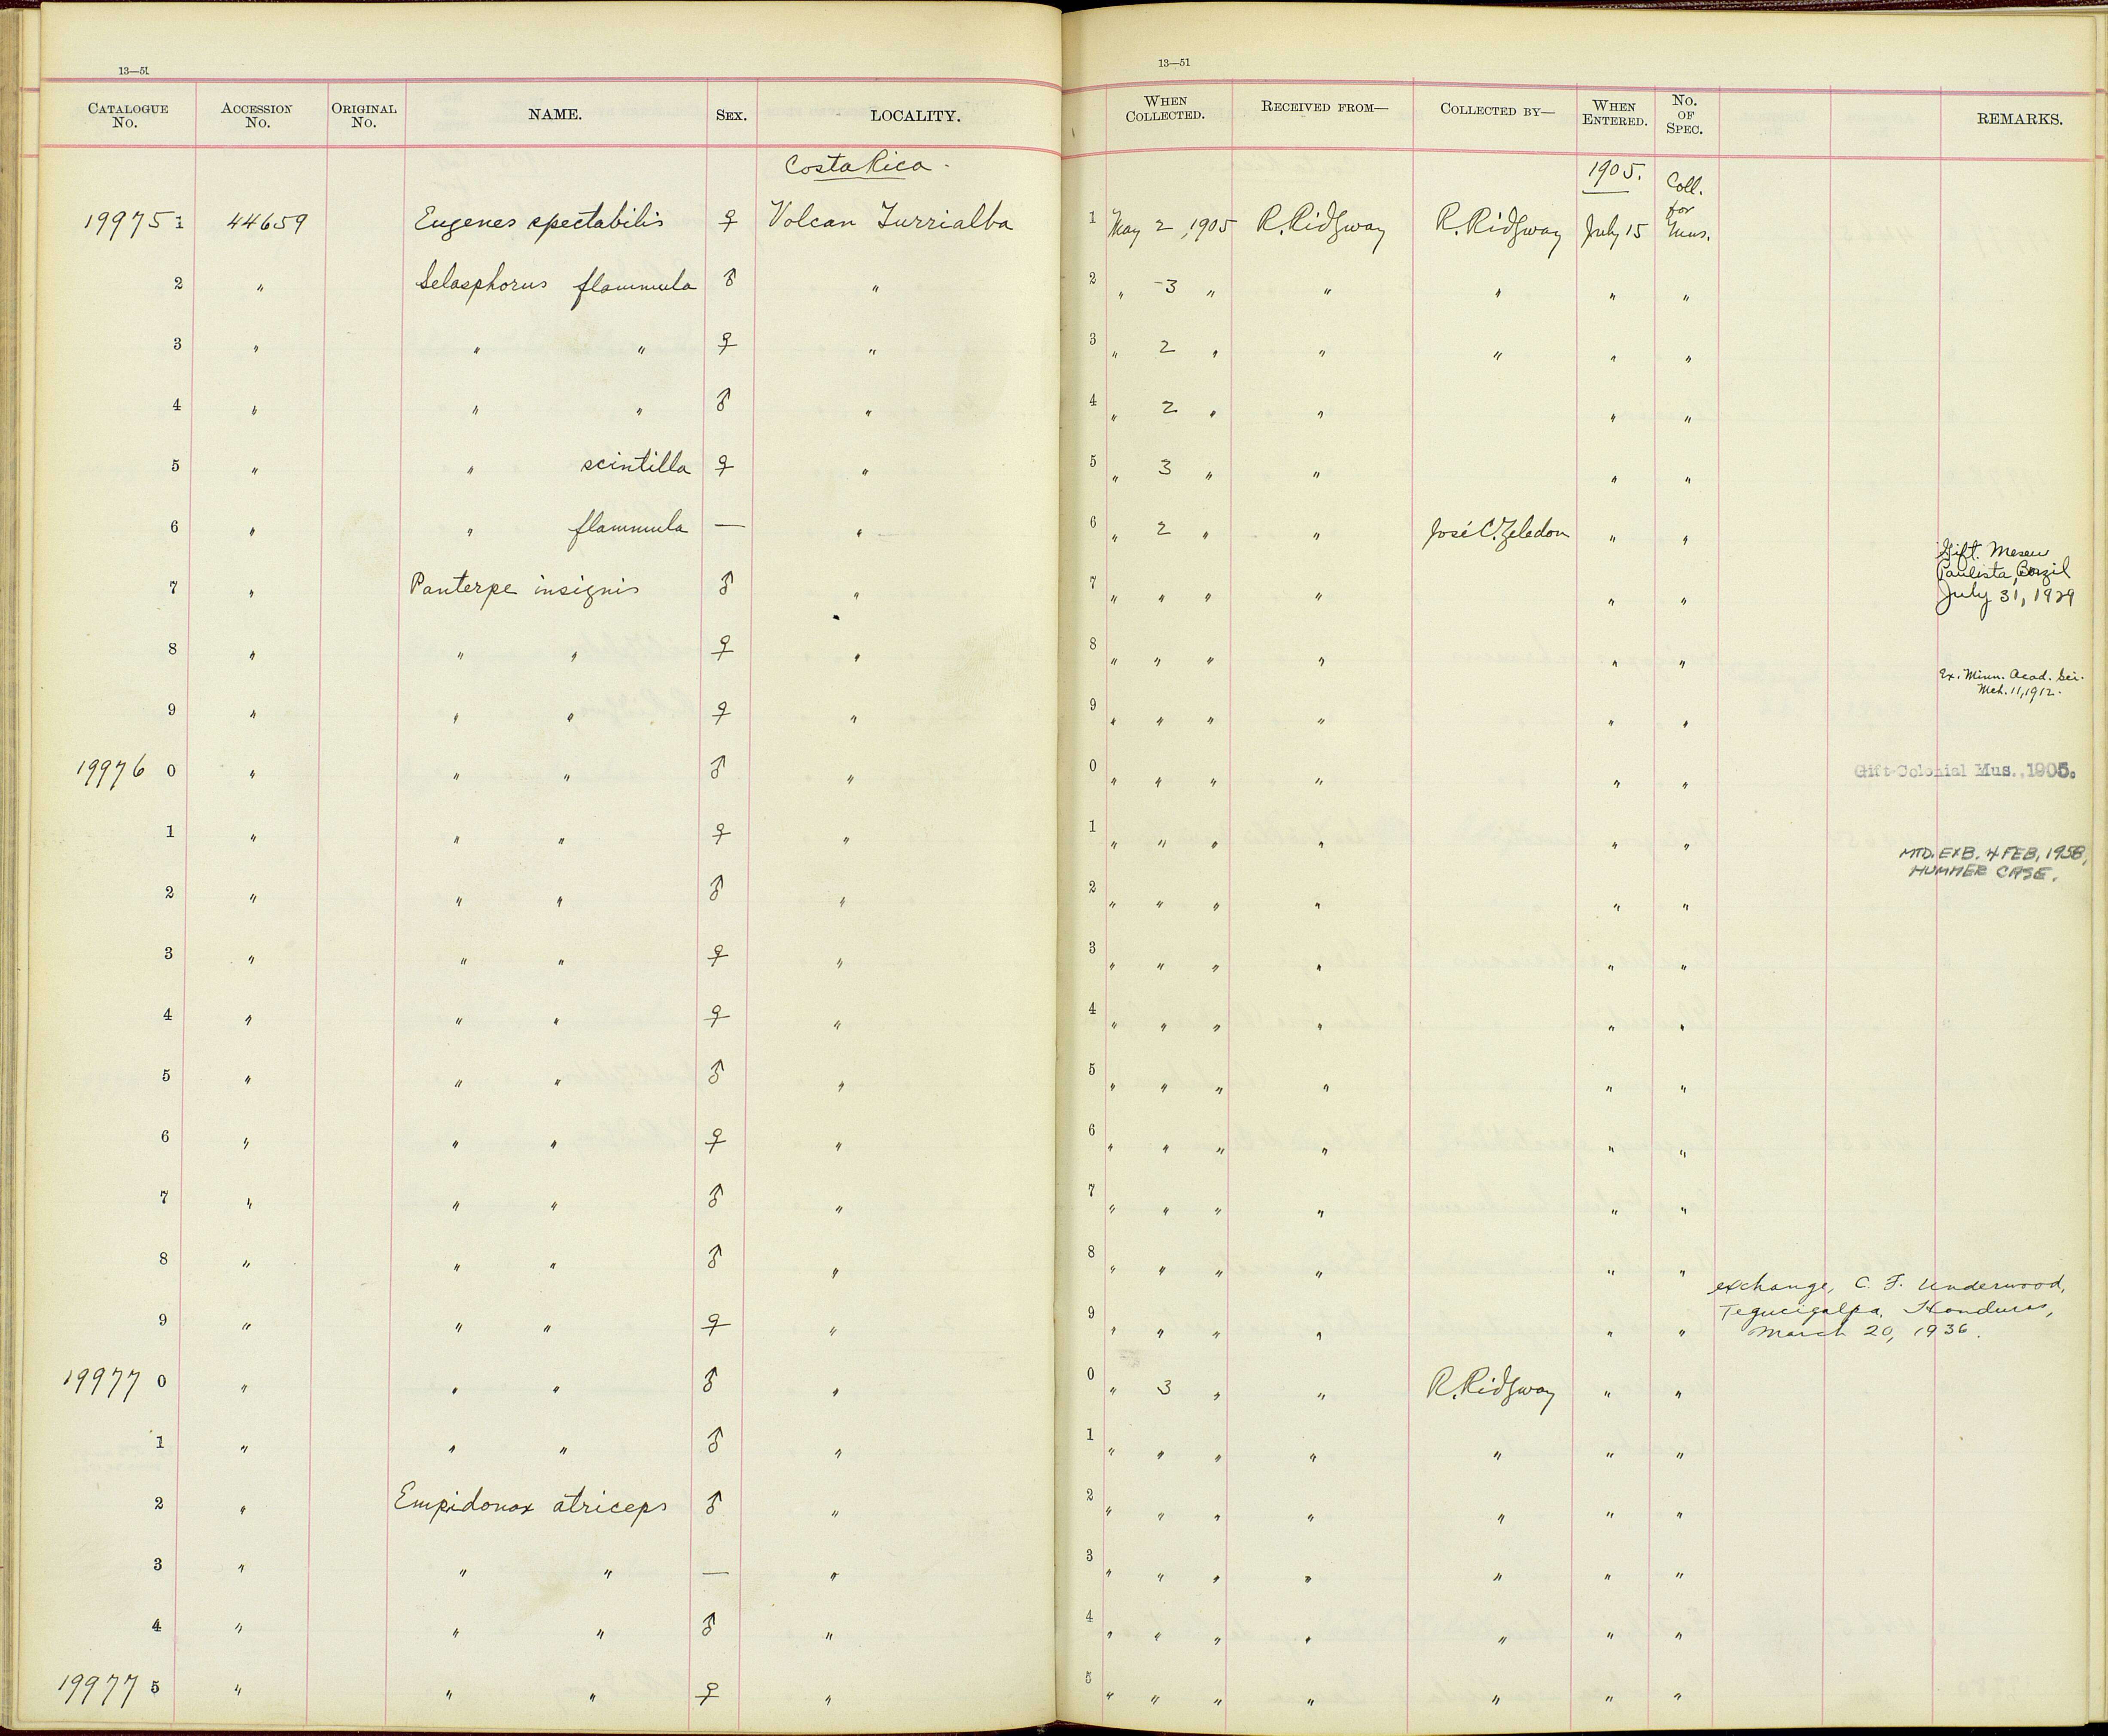 13—51
CATALOGUE No. ACCESSION No. ORIGINAL No. NAME. SEX. LOCALITY.
Costa Rica.
199751 44659 Eugenes spectabilis ♀ Volcan Turrialba
2 " Selasphorus flammula ♂ "
3 " " " ♀ "
4 " " " ♂ "
5 " " scintilla ♀ "
6 " " flammula — "
7 " Panterpe insignis ♂ "
8 " " " ♀ "
9 " " " ♀ "
19976 0 " " " ♂ "
1 " " " ♀ "
2 " " " ♂ "
3 " " " ♀ "
4 " " " ♀ "
5 " " " ♂ "
6 " " " ♀ "
7 " " " ♂ "
8 " " " ♂ "
9 " " " ♀ "
19977 0 " " " ♂ "
1 " " " ♂ "
2 " Empidonax atriceps ♂ "
3 " " " — "
4 " " " ♂ "
19977 5 " " " ♀ "
13—51
WHEN COLLECTED. RECEIVED FROM— COLLECTED BY— WHEN ENTERED. No. OF SPEC. REMARKS.
1905.
1 May 2, 1905 R. Ridgway R. Ridgway July 15 Coll. for Mus.
2 " 3 " " " " "
3 " 2 " " " " "
4 " 2 " " " "
5 " 3 " " " "
6 " 2 " " José C. Zeledon " "
7 " " " " " " Gift. Meseu
Paulista, Bazil
July 31, 1929
8 " " " " " " Ex. Minn. Acad. Sci.
Mch. 11, 1912.
9 " " " " " "
0 " " " " " " Gift-Colonial Mus., 1905.
1 " " " " " " MTD. EXB. 4 FEB, 1958,
HUMMER CASE.
2 " " " " " "
3 " " " " " "
4 " " " " " "
5 " " " " " "
6 " " " " " "
7 " " " " " "
8 " " " " " "
exchange, C. F. Underwood,
Tegucigalpa, Honduras,
March 20, 1936.
9 " " " " " "
0 " 3 " " R. Ridgway " "
1 " " " " " " "
2 " " " " " " "
3 " " " " " " "
4 " " " " " " "
5 " " " " " " "